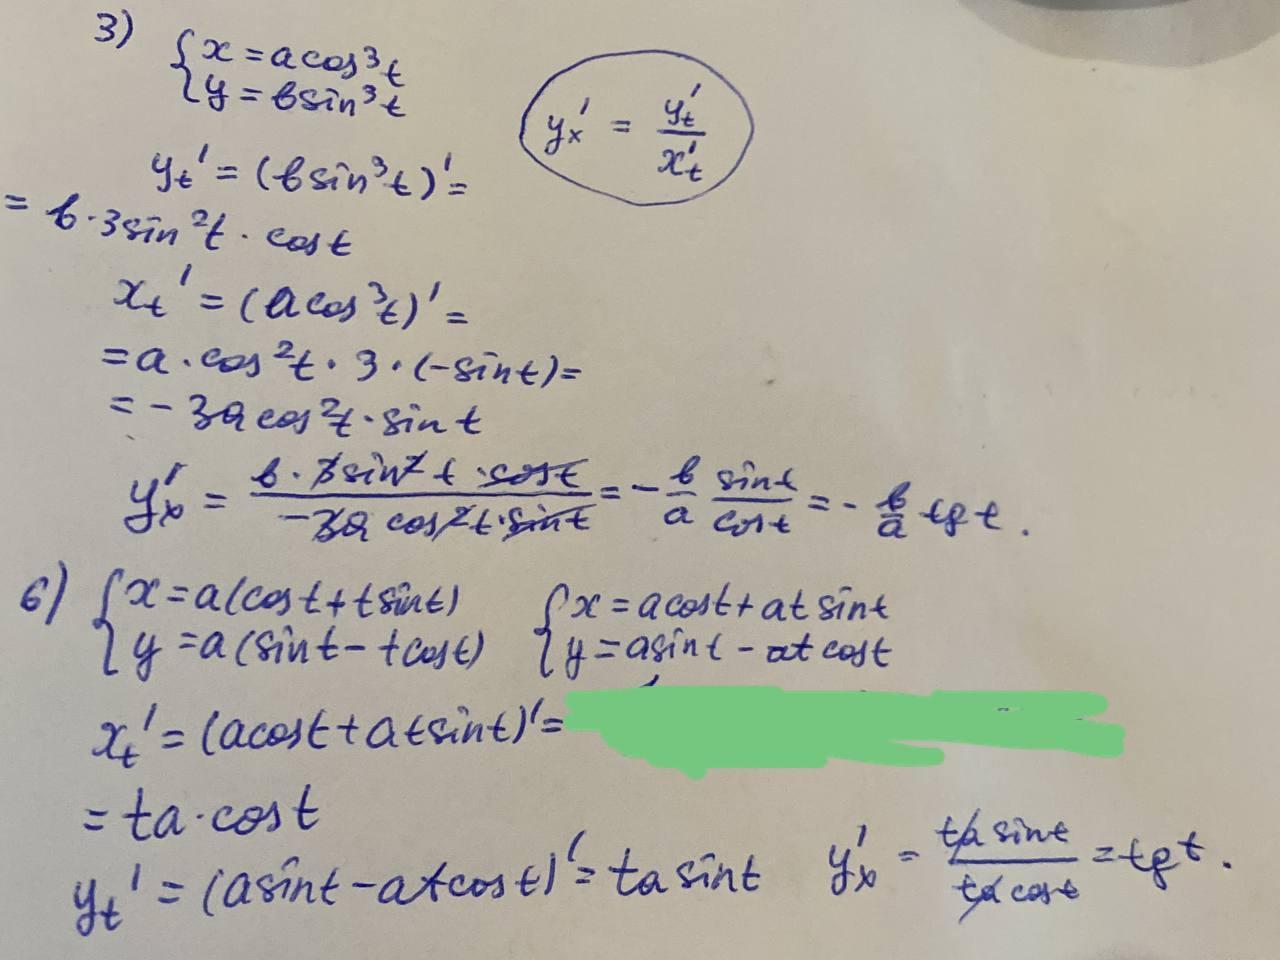 3) { x = a cos³t
y = b sin³t
y'ₓ = y'ₜ / x'ₜ
yₜ' = (b sin³t)' =
= b · 3 sin²t · cos t
xₜ' = (a cos³t)' =
= a · cos²t · 3 · (- sin t) =
= - 3a cos²t · sin t
y'ₓ = b · 3 sin²t · cos t / - 3a cos²t · sin t = - b/a sin t / cos t = - b/a tg t .
6) { x = a(cos t + t sin t) { x = a cos t + at sin t
y = a(sin t - t cos t) y = a sin t - at cos t
xₜ' = (a cos t + a t sin t)' =
= ta · cos t
yₜ' = (a sin t - at cos t)' = ta sin t y'ₓ = ta sin t / ta cos t = tg t .